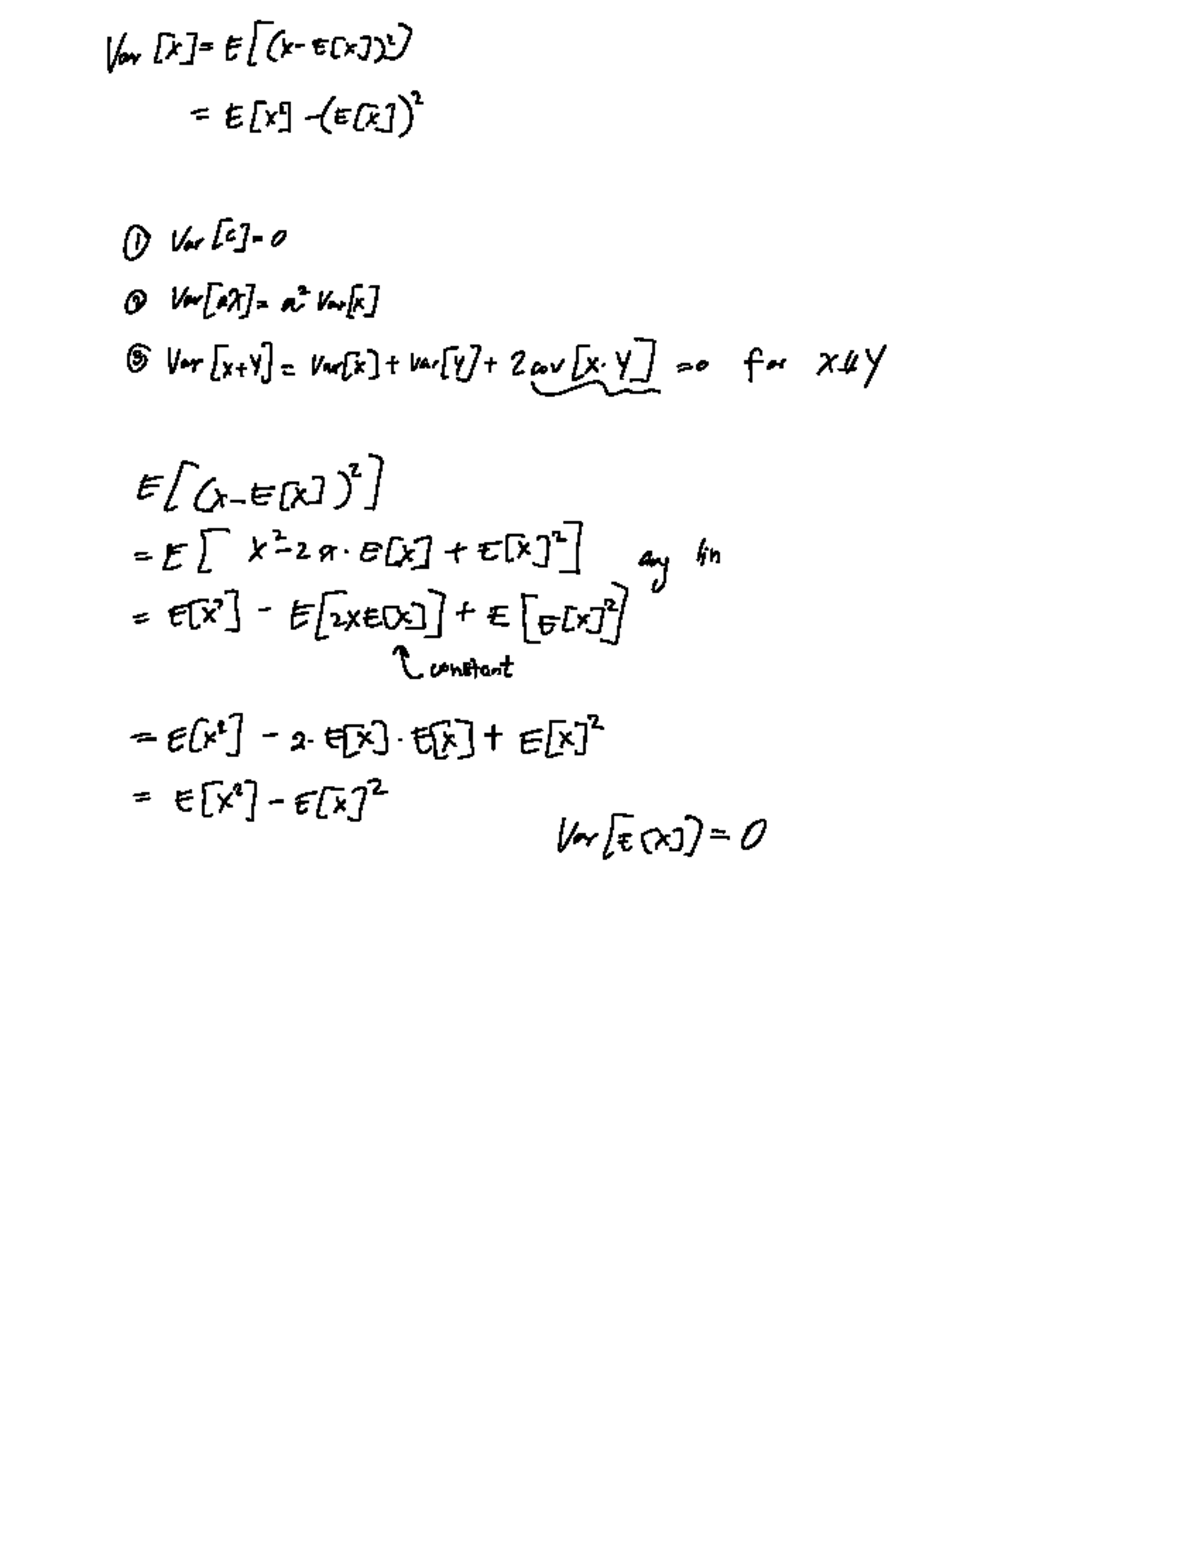 Var [X] = E[(X - E[X])²]
= E[X²] - (E[X])²
① Var [c] = 0
② Var[aX] = a² Var[X]
③ Var [X+Y] = Var[X] + Var[Y] + 2cov [X·Y] = 0 for X⫫Y
E[(X - E[X])²]
= E[ X² - 2X · E[X] + E[X]²] any lin
= E[X²] - E[2XE[X]] + E[E[X]²]
↑ constant
= E[X²] - 2 · E[X] · E[X] + E[X]²
= E[X²] - E[X]²
Var[E[X]] = 0